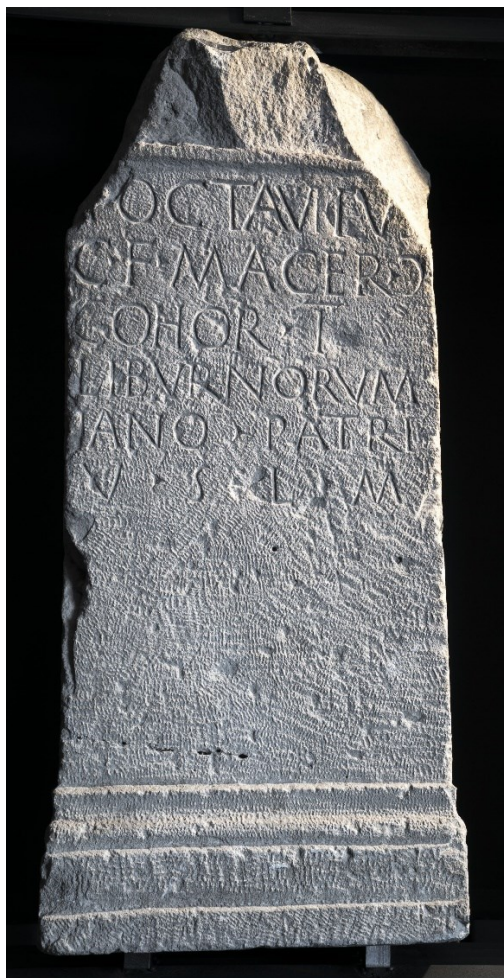 OCTAVIVV
C·F·MACER·
COHOR·I
LIBVRNORVM
IANO·PATRI
V·S·L·M